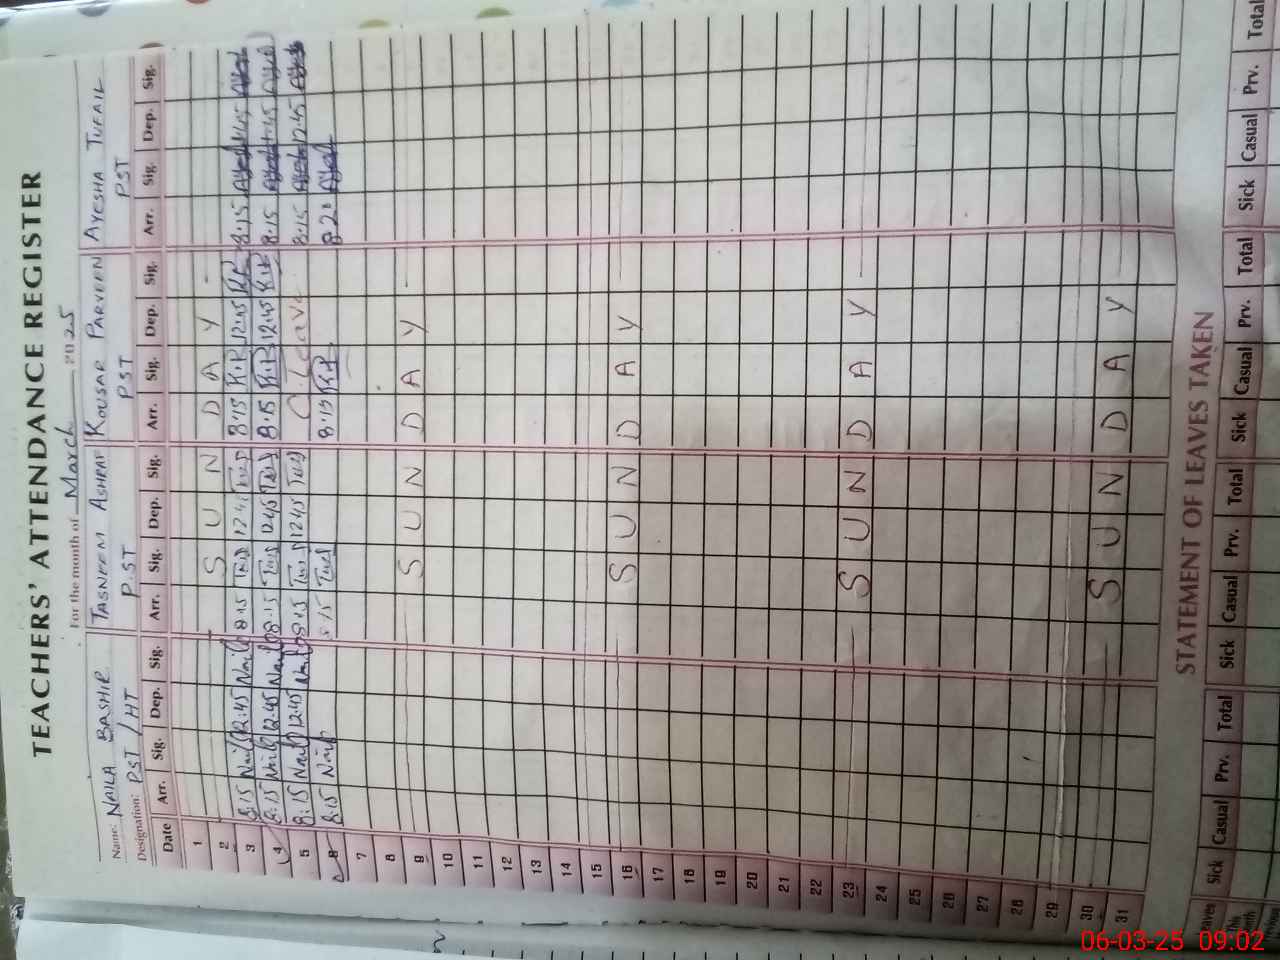 TEACHERS' ATTENDANCE REGISTER
For the month of March 2025
Name: NAILA BASHIR TASNEEM ASHRAF KOUSAR PARVEEN AYESHA TUFAIL
Designation: PST / HT P.ST PST PST
Date Arr. Sig. Dep. Sig. Arr. Sig. Dep. Sig. Arr. Sig. Dep. Sig. Arr. Sig. Dep. Sig.
1
2 S U N D A Y
3 8:15 Naila 12:45 Naila 8:15 8:15 K.P 12:45 K.P 8:15
4 8:15 Naila 12:45 Naila 8:15 1245 8:15 K.P 12:45 K.P 8:15
5 8:15 Naila 12:45 Naila 8:15 1245 C.Leave 8:15 12:45
6 8:15 Naila 8:15 8:15 K.P 8:20
7
8
9 S U N D A Y
10
11
12
13
14
15
16 S U N D A Y
17
18
19
20
21
22
23 S U N D A Y
24
25
26
27
28
29
30 S U N D A Y
31
STATEMENT OF LEAVES TAKEN
Sick Casual Prv. Total Sick Casual Prv. Total Sick Casual Prv. Total Sick Casual Prv. Total
06-03-25 09:02